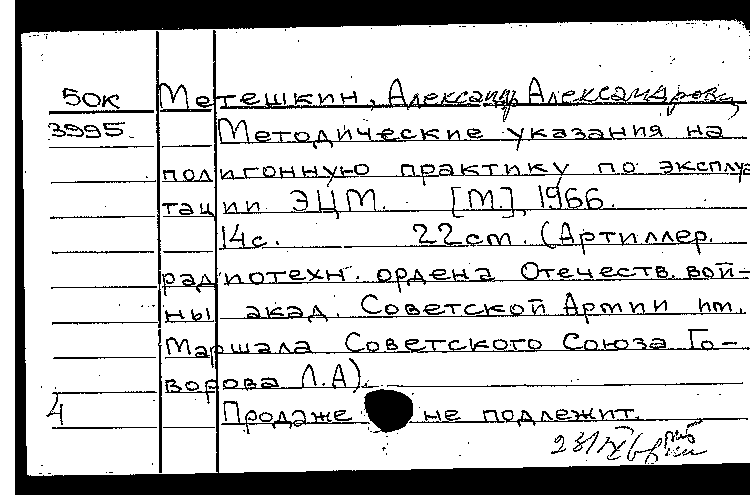 50к Метешкин, Александр Александрович
3995. Методические указания на
полигонную практику по эксплуа
тации ЭЦМ. [М.], 1966.
14с. 22см. (Артиллер.
радиотехн. ордена Отечеств. вой-
ны акад. Советской Армии им.
Маршала Советского Союза Го-
ворова Л.А).
4 Продаже не подлежит.